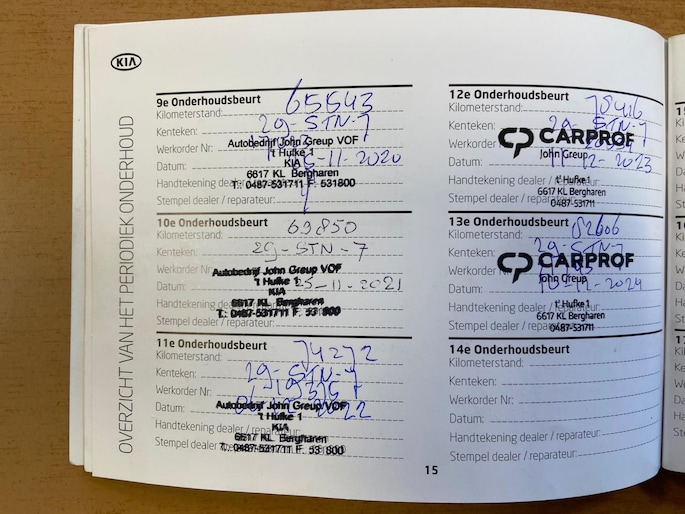 KIA
OVERZICHT VAN HET PERIODIEK ONDERHOUD
9e Onderhoudsbeurt
Kilometerstand: 65543
Kenteken: 29-STN-7
Werkorder Nr:
Autobedrijf John Greup VOF
't Hufke 1
Datum: -11-2020
KIA
6617 KL Bergharen
Handtekening dealer / reparateur:
T.: 0487-531711 F: 531800
Stempel dealer / reparateur:
10e Onderhoudsbeurt
Kilometerstand: 69850
Kenteken: 29-STN-7
Werkorder Nr
Autobedrijf John Greup VOF
't Hufke 1
Datum: 25-11-2021
KIA
Handtekening dealer
6617 KL Bergharen
T.: 0487-531711 F. 53 800
Stempel dealer / reparateur:
11e Onderhoudsbeurt
Kilometerstand: 74272
Kenteken: 29-STN-7
Werkorder Nr:
Datum: 2022
Autobedrijf John Greup VOF
't Hufke 1
Handtekening dealer / reparateur:
KIA
6617 KL Bergharen
Stempel dealer / reparateur:
T.: 0487-531711 F. 53 800
12e Onderhoudsbeurt
Kilometerstand: 78416
Kenteken: 29-STN-7
Werkorder Nr:
CARPROF
John Greup
Datum: 12-2023
Handtekening dealer / reparateur:
't Hufke 1
6617 KL Bergharen
Stempel dealer / reparateur:
0487-531711
13e Onderhoudsbeurt
Kilometerstand: 82606
Kenteken: 29-STN-7
Werkorder Nr:
CARPROF
John Greup
Datum: 12-2024
Handtekening dealer / reparateur:
't Hufke 1
6617 KL Bergharen
Stempel dealer / reparateur:
0487-531711
14e Onderhoudsbeurt
Kilometerstand:
Kenteken:
Werkorder Nr:
Datum:
Handtekening dealer / reparateur:
Stempel dealer / reparateur:
15